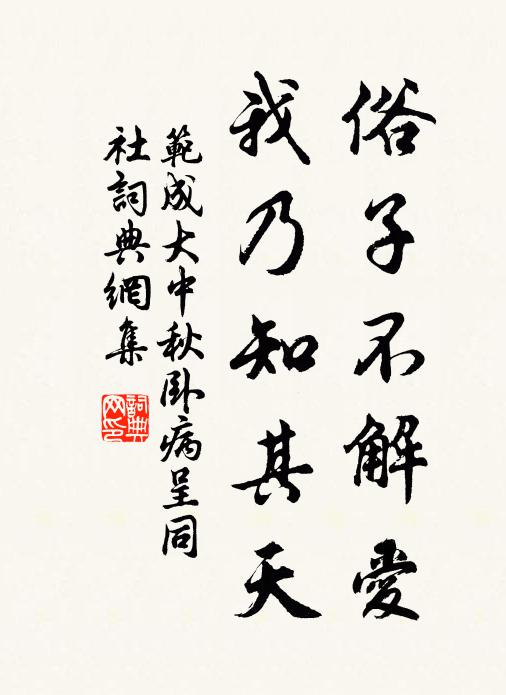 俗子不解愛
我乃知其天
範成大中秋卧病呈同
社詞典網集
詞典
网印